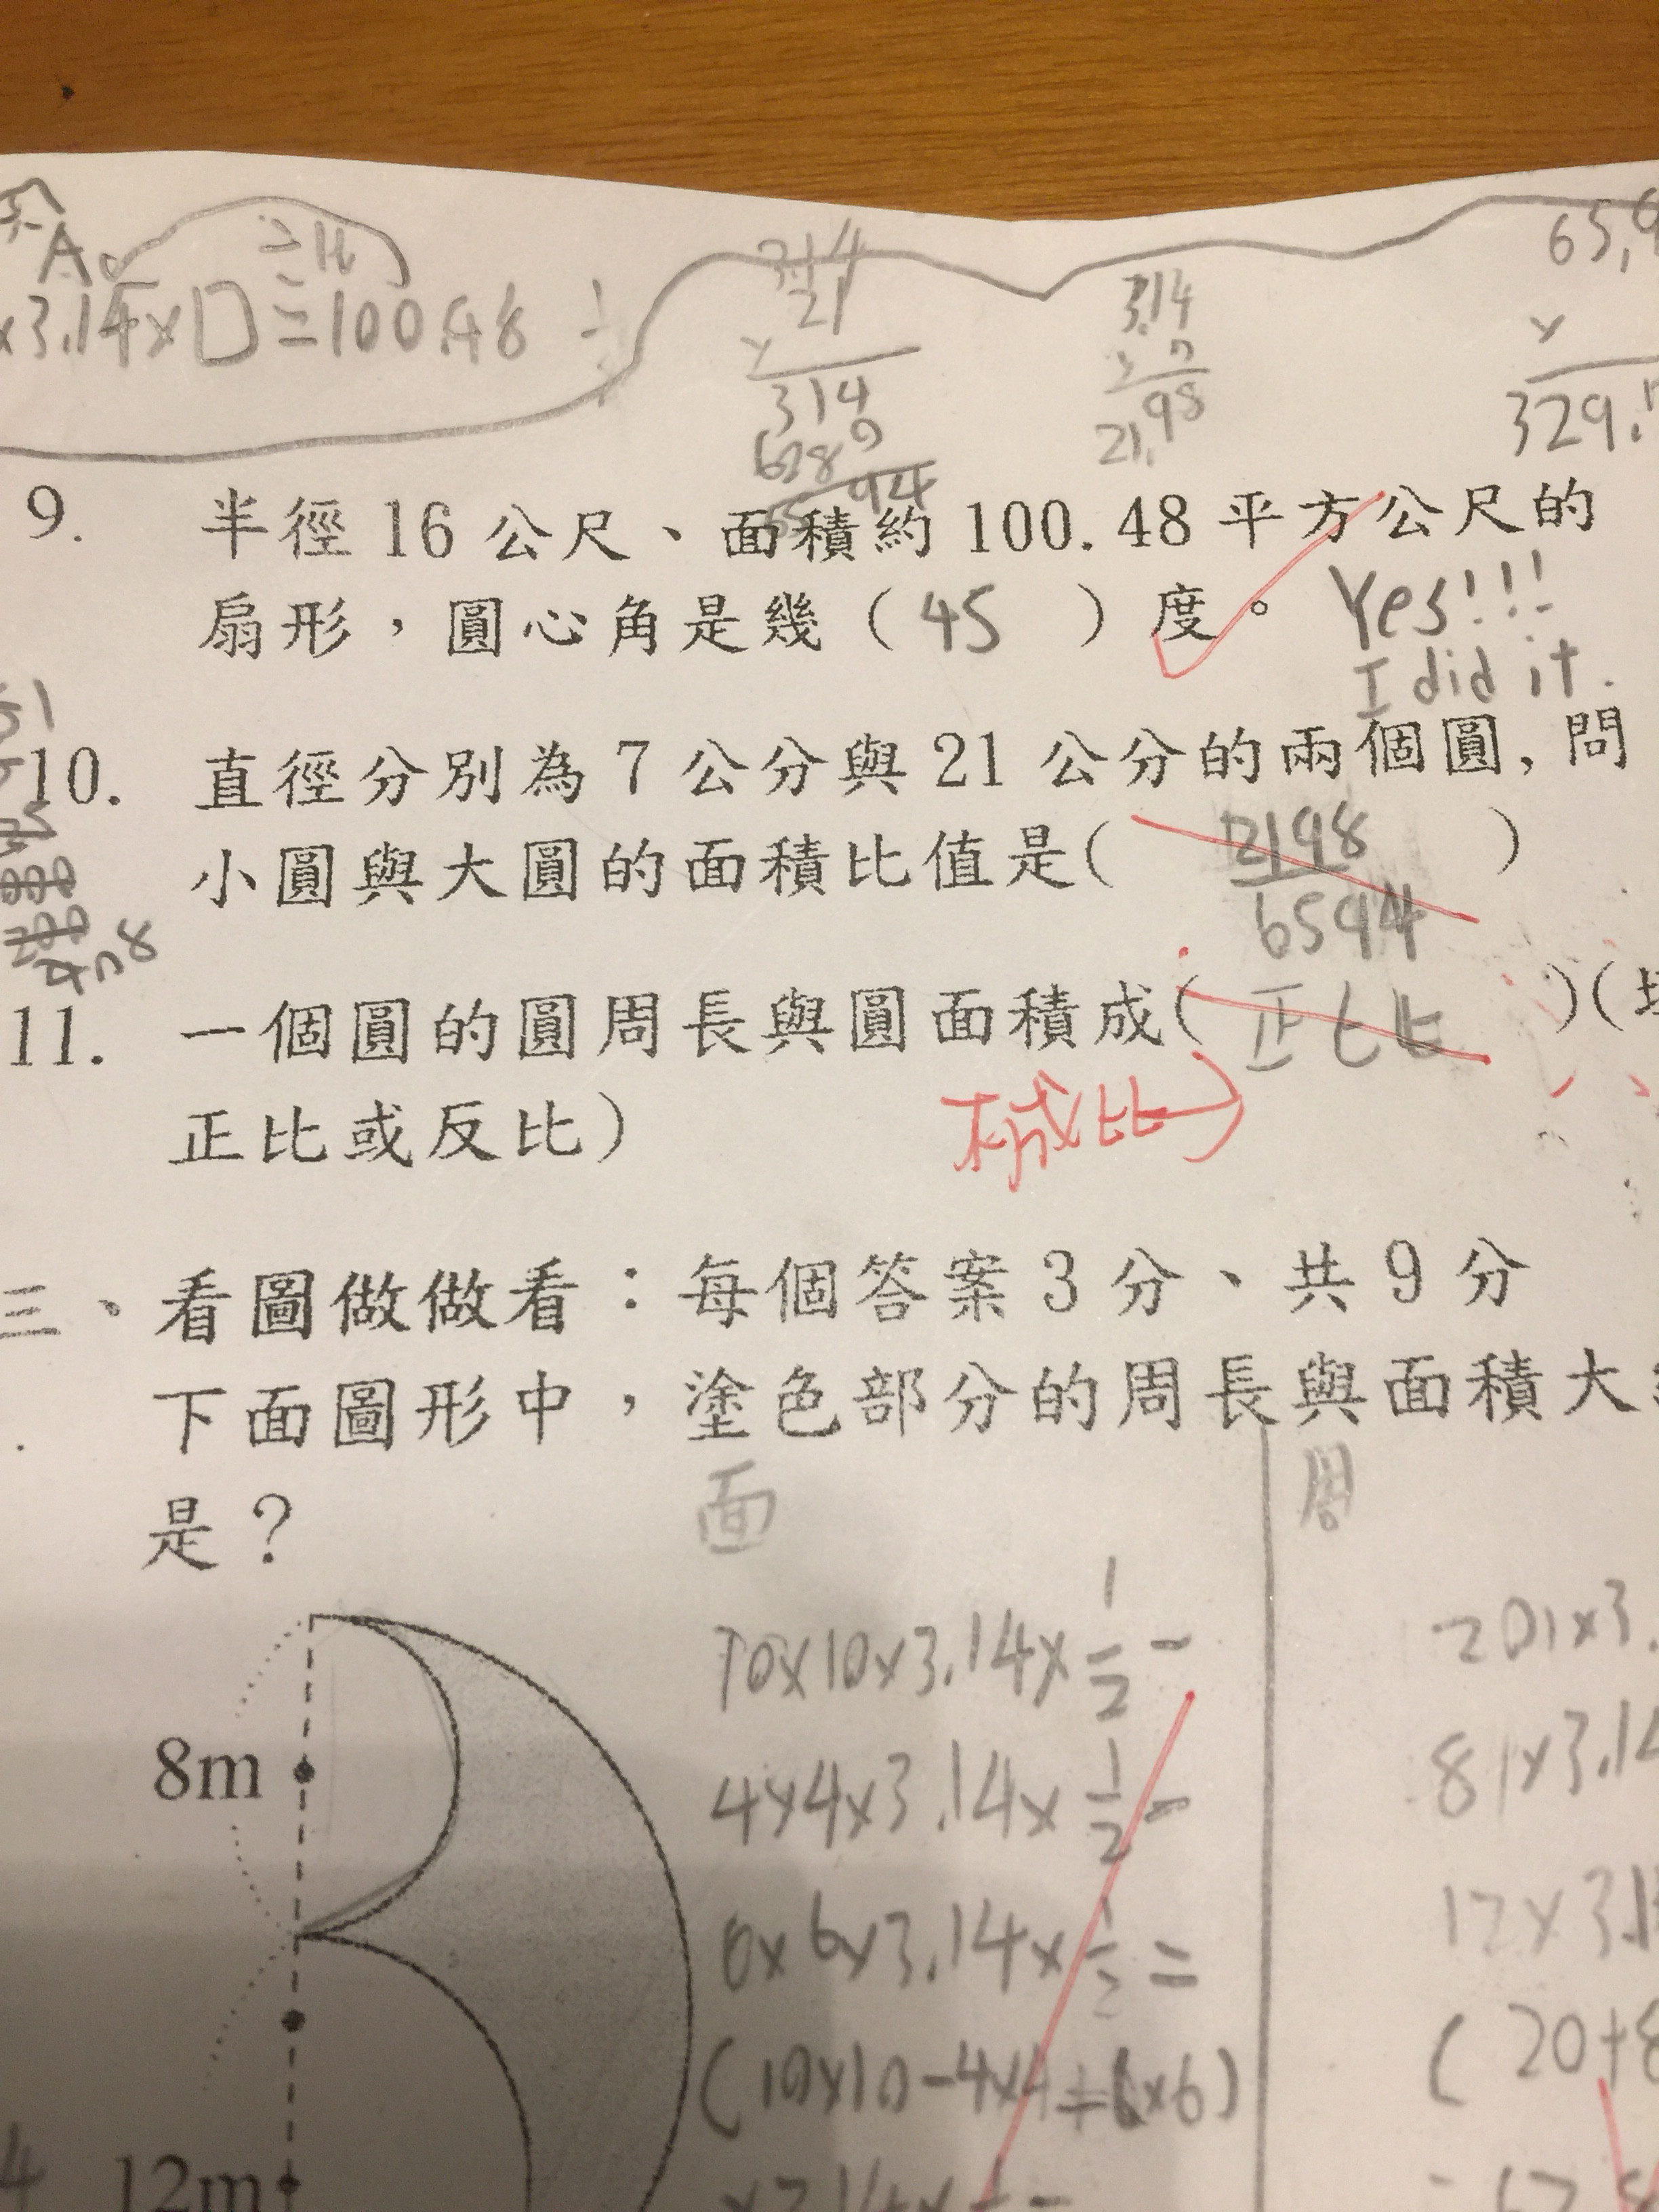 x3.14x口=100.48
314
x 21
314
628
3.14
x 7
21.98
65.9
x
329.
9. 半徑 16 公尺、面積約 100.48 平方公尺的
扇形，圓心角是幾（ 45 ）度。
Yes!!!
I did it.
10. 直徑分別為 7 公分與 21 公分的兩個圓,問
小圓與大圓的面積比值是( 2198/6594 )
11. 一個圓的圓周長與圓面積成( 正比 )(
正比或反比)
不成比
三、看圖做做看：每個答案 3 分、共 9 分
下面圖形中，塗色部分的周長與面積大
是？
面
周
10x10x3.14x1/2-
4x4x3.14x1/2-
6x6x3.14x1/2=
(10x10-4x4-6x6)
x3.14x
8x3.14
12x3.1
(20+8
8m
12m